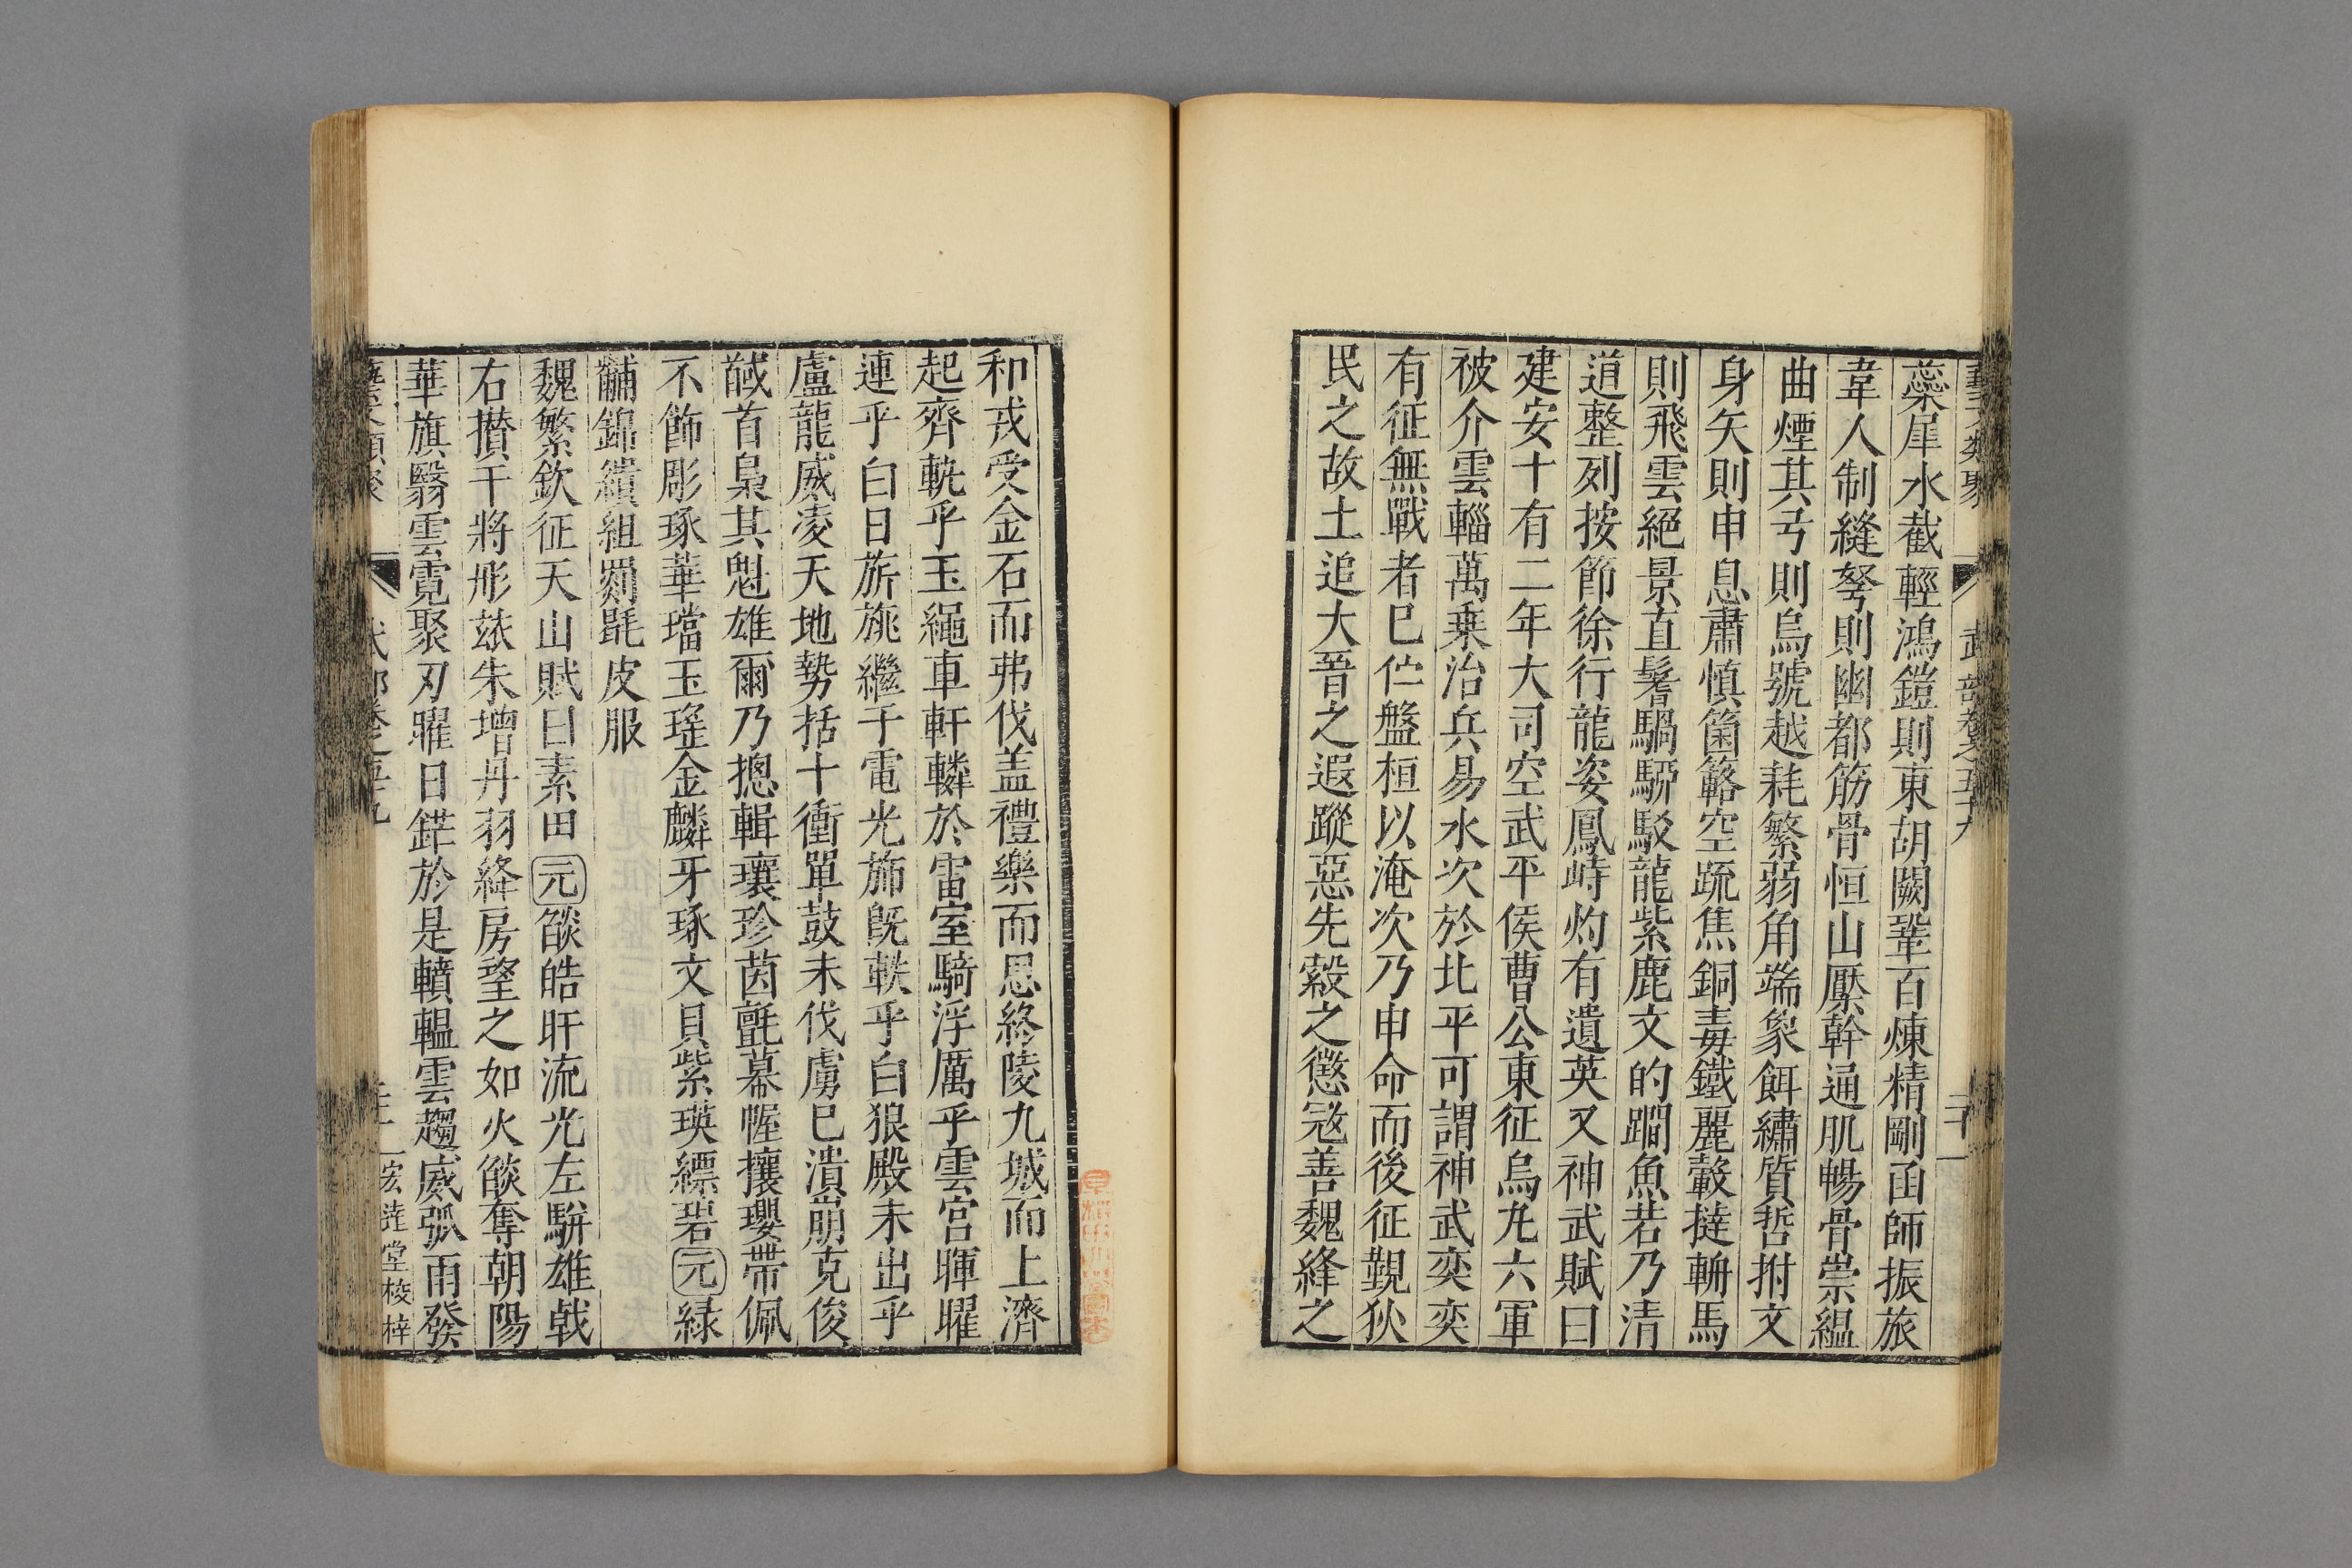 藝文類聚 武部卷之五十九 二十一
蘂犀水截輕鴻鎧則東胡闕鞏百煉精剛函師振旅
韋人制縫弩則幽都筋骨恒山壓幹通肌暢骨崇緼
曲煙其弓則烏號越耗繁弱角端象餌繡質晢拊文
身矢則申息肅慎箘簵空疏焦銅毒鐵麗轂撻輈馬
則飛雲絕景直鬐騧駵駁龍紫鹿文的䦨魚若乃清
道整列按節徐行龍姿鳳峙灼有遺英又神武賦曰
建安十有二年大司空武平侯曹公東征烏丸六軍
被介雲輜萬乗治兵易水次於北平可謂神武奕奕
有征無戰者巳伫盤桓以淹次乃申命而後征觀狄
民之故土追大晉之遐蹤惡先縠之懲宼善魏絳之
和戎受金石而弗伐盖禮樂而思終陵九城而上濟
起齊軌乎玉繩車軒轔於雷室騎浮厲乎雲宫暉曜
連乎白日旂旐繼于電光斾旣軼乎白狼殿未出乎
盧龍威凌天地勢括十衝單鼓未伐虜巳潰崩克俊
馘首梟其魁雄爾乃揔輯瓌珍茵氈幕幄攘瓔帶佩
不飾彫琢華璫玉瑤金麟牙琢文貝紫瑛縹碧元緑
黼錦繢組罽毦皮服
魏繁欽征天山賦曰素田元燄皓旰流光左騈雄戟
右攅干將彤玈朱增丹羽絳房望之如火燄奪朝陽
華旗翳雲霓聚刃曜日鋩於是轒轀雲趨威弧雨發
藝文類聚 武部卷之五十九 二十一 宏達堂梭梓